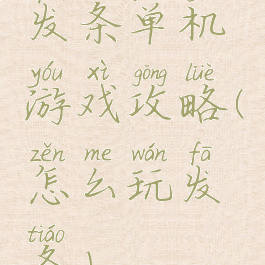 发条单机
yóu xì gōng lüè
游戏攻略(
zěn me wán fā
怎么玩发
tiáo
条)